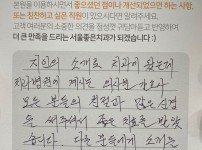 본원을 이용하시면서 좋으셨던 점이나 개선되었으면 하는 점,
또는 칭찬하고 싶은 직원이 있으시다면 알려주세요.
고객 여러분이 소중한 의견을 정성껏 귀담아듣고 반영하여
더 큰 만족을 드리는 서울좋은치과가 되겠습니다 :)
지인의 소개로 치과에 왔는데
치과병원에 계시는 의사분 간호사
모든 분들의 친절과 많은 신경
을 써주셔서 좋은 진료를 받았
습니다. 다른 분들에게 소개는